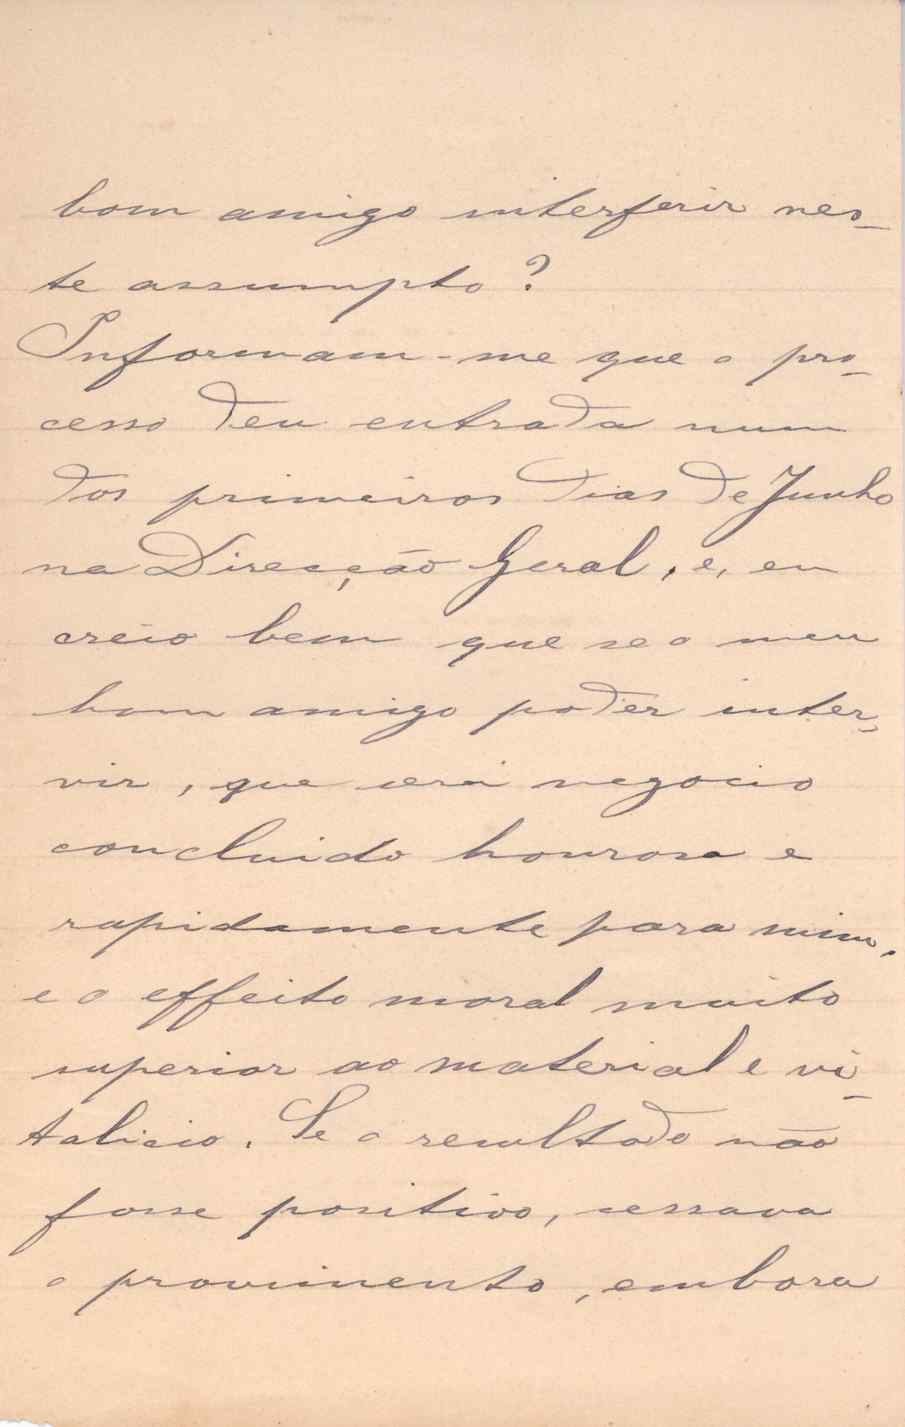 bom amigo interferir nes-
te assumpto?
Informam-me que o pro-
cesso deu entrada num
dos primeiros dias de Junho
na Direcção Geral, e, eu
creio bem que se o meu
bom amigo poder inter-
vir, que será negocio
concluido honrosa e
rapidamente para mim,
e o effeito moral muito
superior ao material e vi-
talicio. Se o resultado não
fosse positivo, cessava
o provimento, embora